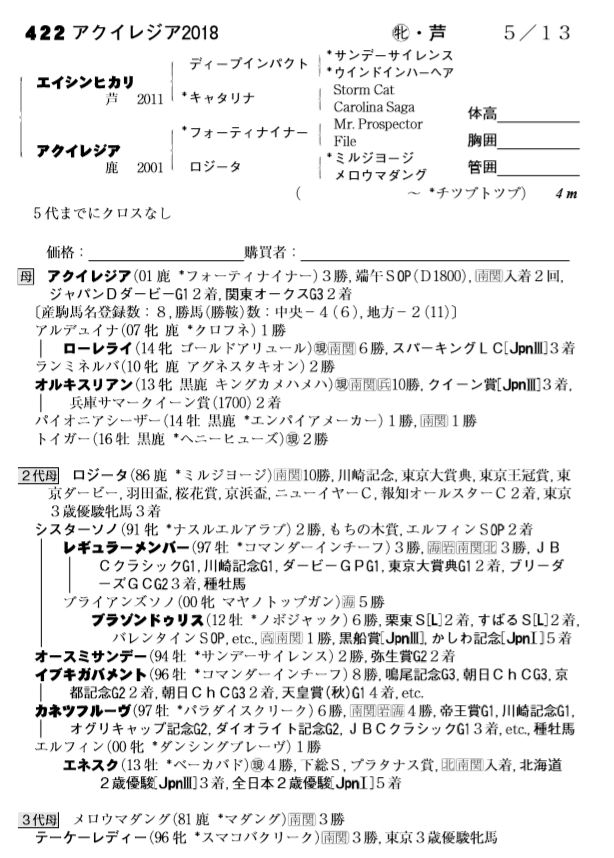 422 アクイレジア2018 ㊛・芦 5/13
ディープインパクト
*サンデーサイレンス
*ウインドインハーヘア
エイシンヒカリ
芦 2011
*キャタリナ
Storm Cat
Carolina Saga
Mr. Prospector
体高
*フォーティナイナー
File
胸囲
アクイレジア
鹿 2001
ロジータ
*ミルジヨージ
メロウマダング
管囲
( ~ *チツプトツプ) 4 m
5代までにクロスなし
価格: 購買者:
母 アクイレジア(01 鹿 *フォーティナイナー)3勝, 端午SOP(D1800), 南関入着2回,
ジャパンDダービーG1 2着, 関東オークスG3 2着
〔産駒馬名登録数:8, 勝馬(勝鞍)数:中央-4(6), 地方-2(11)〕
アルデュイナ(07 牝 鹿 *クロフネ)1勝
ローレライ(14 牝 ゴールドアリュール)現南関6勝, スパーキングLC[JpnⅢ]3着
ランミネルバ(10 牝 鹿 アグネスタキオン)2勝
オルキスリアン(13 牝 黒鹿 キングカメハメハ)現南関兵10勝, クイーン賞[JpnⅢ]3着,
兵庫サマークイーン賞(1700)2着
パイオニアシーザー(14 牡 黒鹿 *エンパイアメーカー)1勝, 南関1勝
トイガー(16 牡 黒鹿 *ヘニーヒューズ)現2勝
2代母 ロジータ(86 鹿 *ミルジヨージ)南関10勝, 川崎記念, 東京大賞典, 東京王冠賞, 東
京ダービー, 羽田盃, 桜花賞, 京浜盃, ニューイヤーC, 報知オールスターC2着, 東京
3歳優駿牝馬3着
シスターソノ(91 牝 *ナスルエルアラブ)2勝, もちの木賞, エルフィンSOP2着
レギュラーメンバー(97 牡 *コマンダーインチーフ)3勝, 海岩南関北3勝, JB
CクラシックG1, 川崎記念G1, ダービーGPG1, 東京大賞典G1 2着, ブリーダ
ーズGCG2 3着, 種牡馬
ブライアンズソノ(00 牝 マヤノトップガン)海5勝
ブラゾンドゥリス(12 牡 *ノボジャック)6勝, 栗東S[L]2着, すばるS[L]2着,
バレンタインSOP, etc., 高南関1勝, 黒船賞[JpnⅢ], かしわ記念[JpnⅠ]5着
オースミサンデー(94 牡 *サンデーサイレンス)2勝, 弥生賞G2 2着
イブキガバメント(96 牡 *コマンダーインチーフ)8勝, 鳴尾記念G3, 朝日ChCG3, 京
都記念G2 2着, 朝日ChCG3 2着, 天皇賞(秋)G1 4着, etc.
カネツフルーヴ(97 牡 *パラダイスクリーク)6勝, 南関岩海4勝, 帝王賞G1, 川崎記念G1,
オグリキャップ記念G2, ダイオライト記念G2, JBCクラシックG1 3着, etc., 種牡馬
エルフィン(00 牝 *ダンシングブレーヴ)1勝
エネスク(13 牡 *ベーカバド)現4勝, 下総S, プラタナス賞, 北南関入着, 北海道
2歳優駿[JpnⅢ]3着, 全日本2歳優駿[JpnⅠ]5着
3代母 メロウマダング(81 鹿 *マダング)南関3勝
テーケーレディー(96 牝 *スマコバクリーク)南関3勝, 東京3歳優駿牝馬